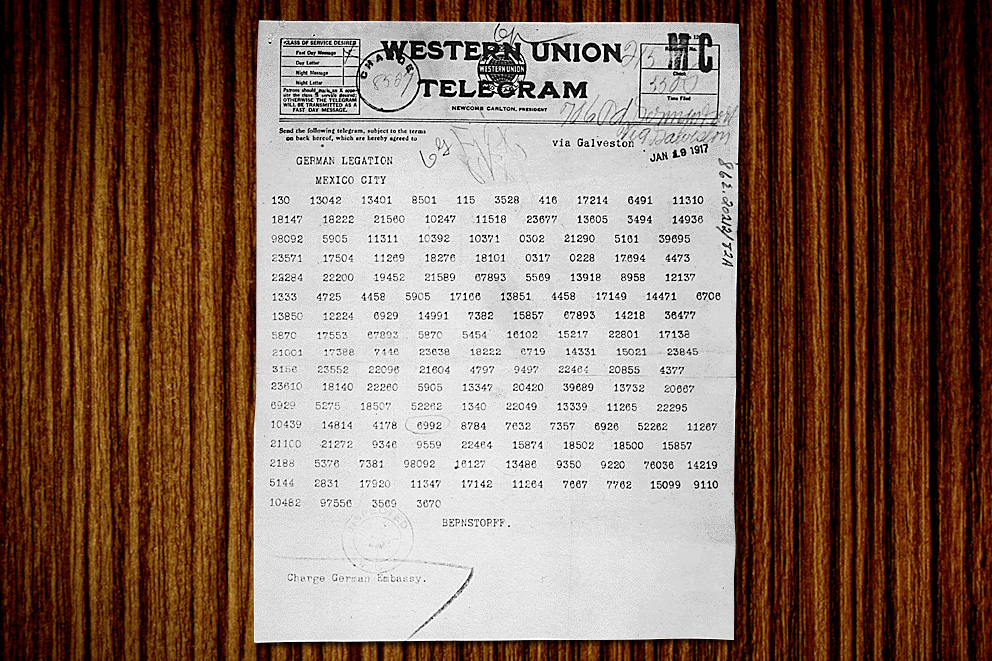 CLASS OF SERVICE DESIRED
Fast Day Message
Day Letter
Night Message
Night Letter
Patrons should mark an X oppo-
site the class of service desired;
OTHERWISE THE TELEGRAM
WILL BE TRANSMITTED AS A
FAST DAY MESSAGE.
CHARGE
WESTERN UNION
WESTERN UNION
TELEGRAM
NEWCOMB CARLTON, PRESIDENT
MC
Check
Time Filed
Send the following telegram, subject to the terms
on back hereof, which are hereby agreed to
via Galveston
JAN 19 1917
GERMAN LEGATION
MEXICO CITY
130 13042 13401 8501 115 3528 416 17214 6491 11310
18147 18222 21560 10247 11518 23677 13605 3494 14936
98092 5905 11311 10392 10371 0302 21290 5161 39695
23571 17504 11269 18276 18101 0317 0228 17694 4473
23284 22200 19452 21589 67893 5569 13918 8958 12137
1333 4725 4458 5905 17166 13851 4458 17149 14471 6706
13850 12224 6929 14991 7382 15857 67893 14218 36477
5870 17553 67893 5870 5454 16102 15217 22801 17138
21001 17388 7446 23638 18222 6719 14331 15021 23845
3156 23552 22096 21604 4797 9497 22464 20855 4377
23610 18140 22260 5905 13347 20420 39689 13732 20667
6929 5275 18507 52262 1340 22049 13339 11265 22295
10439 14814 4178 6992 8784 7632 7357 6926 52262 11267
21100 21272 9346 9559 22464 15874 18502 18500 15857
2188 5376 7381 98092 16127 13486 9350 9220 76036 14219
5144 2831 17920 11347 17142 11264 7667 7762 15099 9110
10482 97556 3569 3670
BERNSTORFF.
Charge German Embassy.